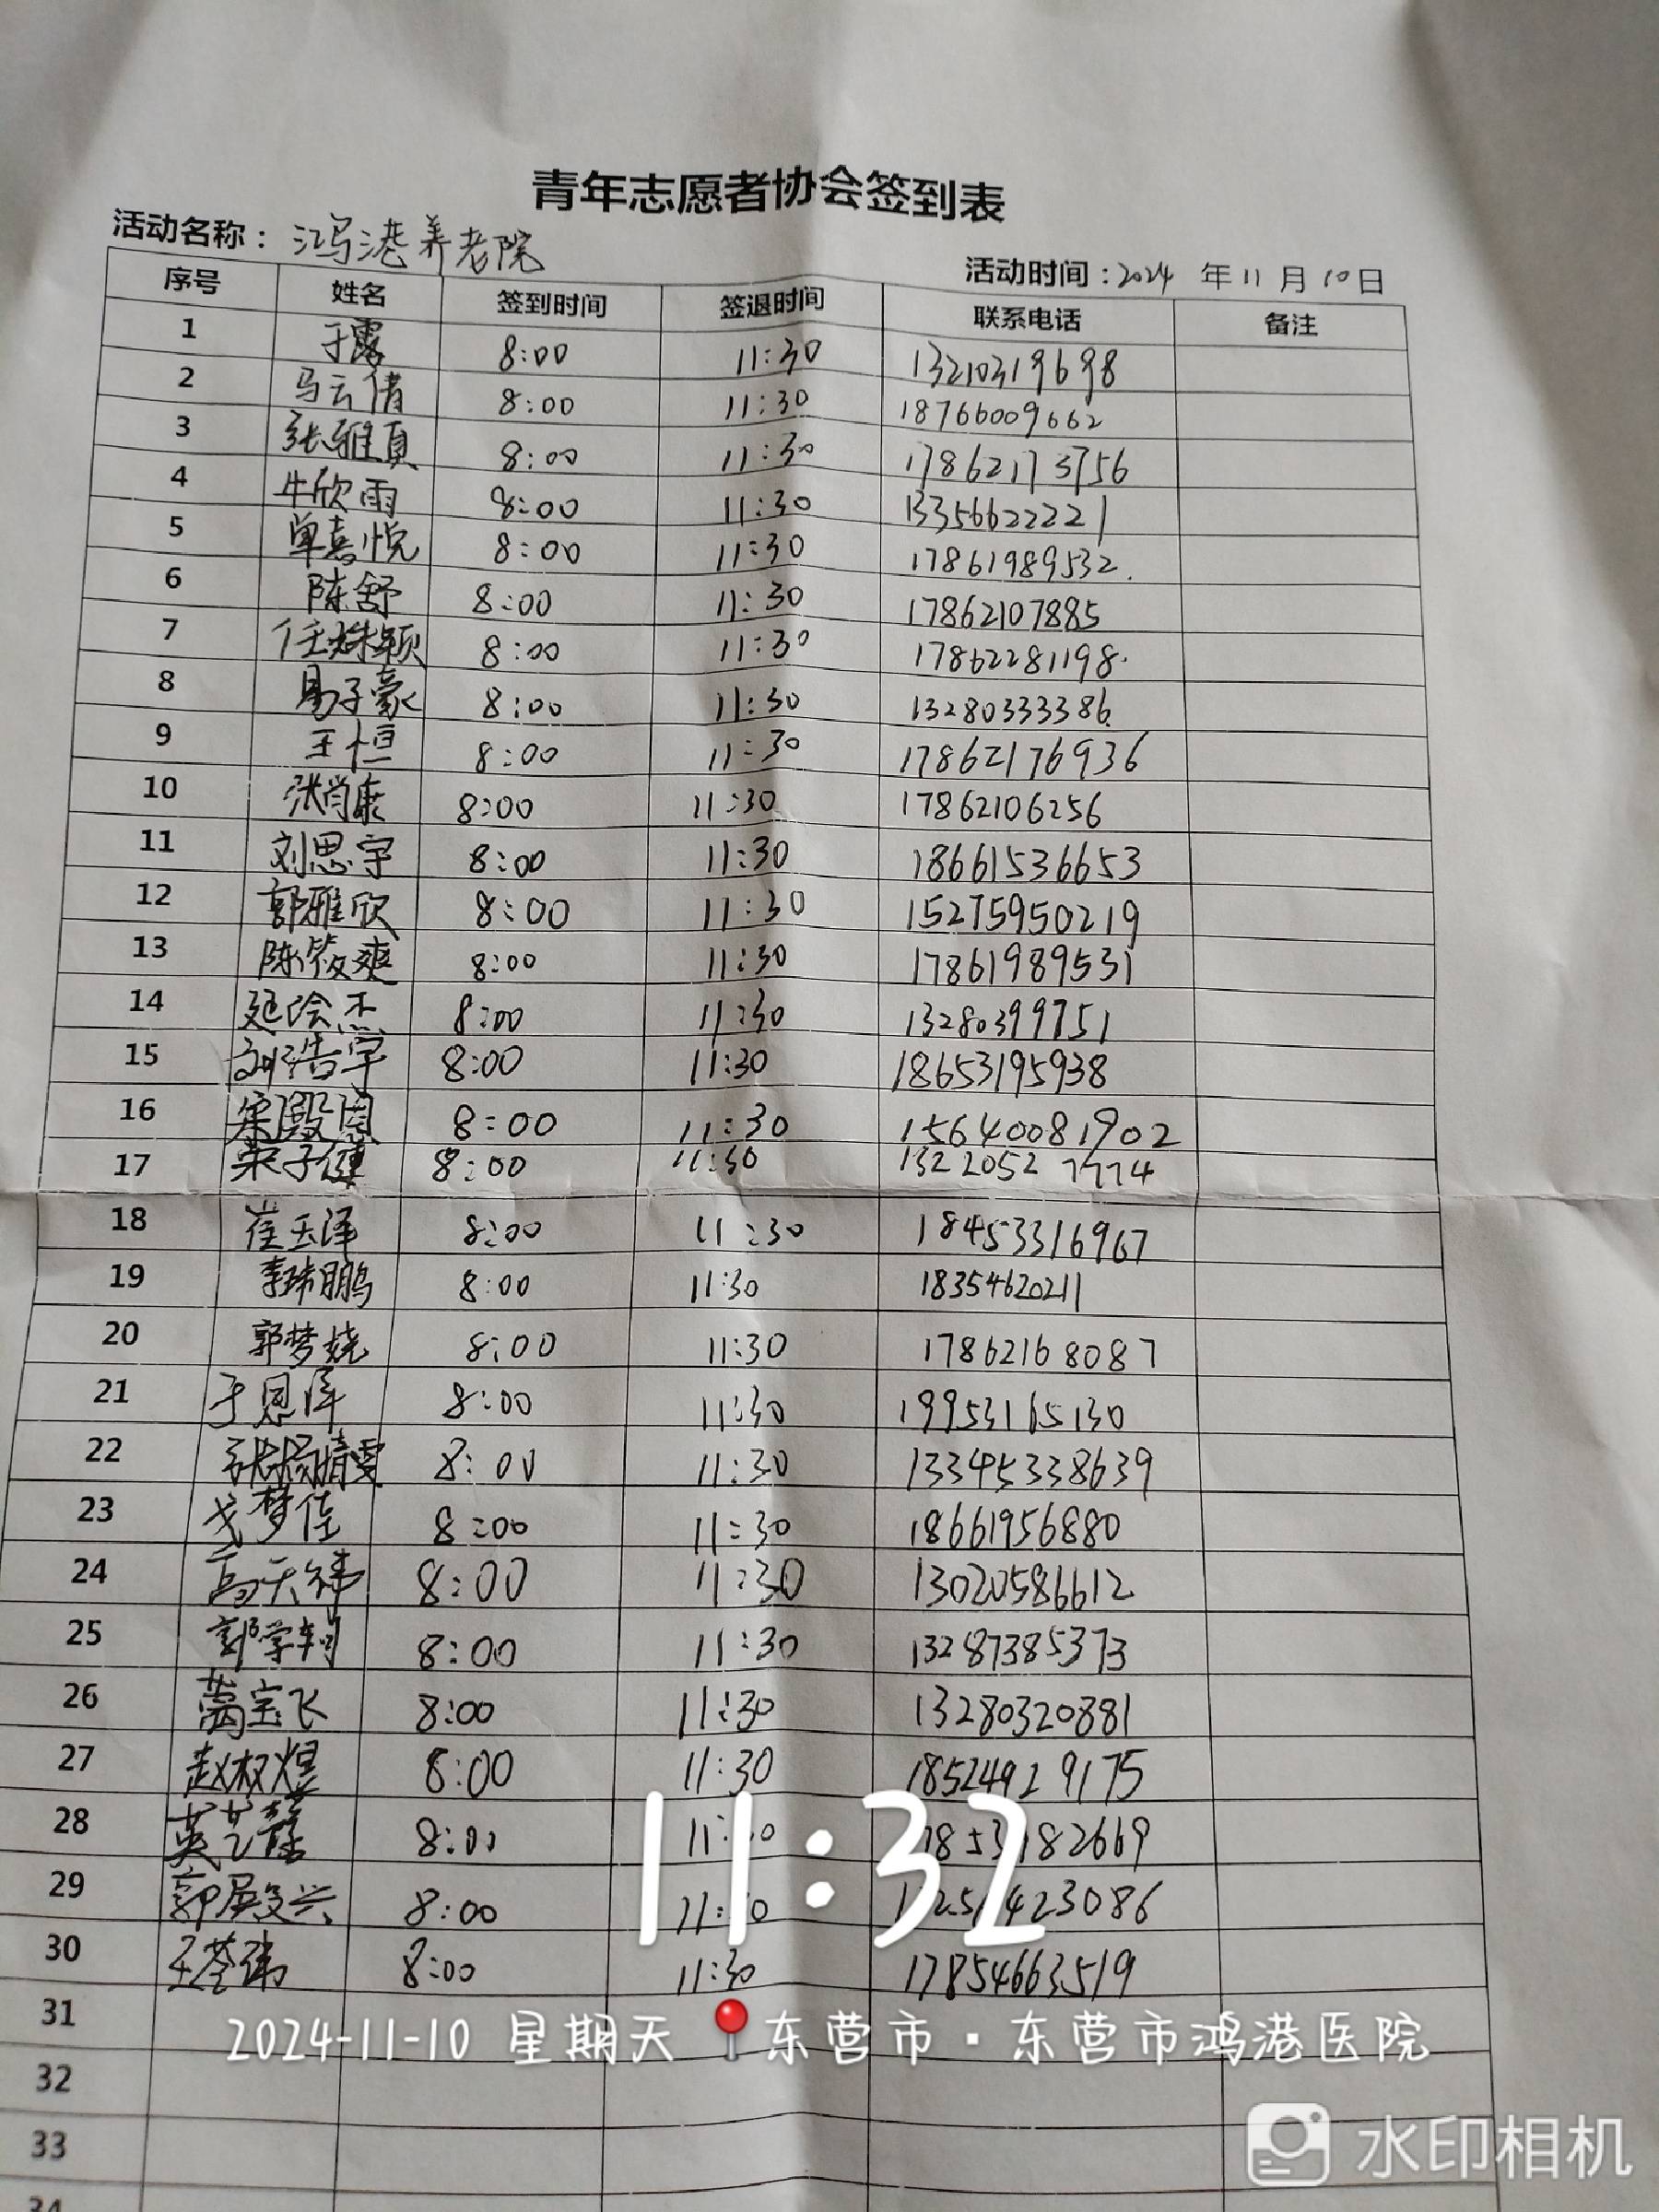 青年志愿者协会签到表
活动名称：鸿港养老院
活动时间：2024 年 11 月 10 日
序号 姓名 签到时间 签退时间 联系电话 备注
1 于露 8:00 11:30 13210319698
2 马云倩 8:00 11:30 18766009662
3 张雅真 8:00 11:30 17862173756
4 牛欣雨 8:00 11:30 13356622221
5 单嘉悦 8:00 11:30 17861989532
6 陈舒 8:00 11:30 17862107885
7 任姝颖 8:00 11:30 17862281198
8 易子豪 8:00 11:30 13280333386
9 王恒 8:00 11:30 17862176936
10 张肖康 8:00 11:30 17862106256
11 刘思宇 8:00 11:30 18661536653
12 郭雅欣 8:00 11:30 15275950219
13 陈筱爽 8:00 11:30 17861989531
14 8:00 11:30 13280399751
15 刘浩宇 8:00 11:30 18653195938
16 8:00 11:30 15640081902
17 8:00 11:30 13220527774
18 崔玉泽 8:00 11:30 18453316967
19 李玮鹏 8:00 11:30 18354620211
20 郭梦娆 8:00 11:30 17862168087
21 于恩泽 8:00 11:30 19953165130
22 张杨婧雯 8:00 11:30 13345338639
23 戈梦佳 8:00 11:30 18661956880
24 高天祎 8:00 11:30 13020586612
25 郭学轲 8:00 11:30 13287385373
26 蔺宝飞 8:00 11:30 13280320881
27 赵权煜 8:00 11:30 18524929175
28 英艺馨 8:00
29 郭殿兴 8:00
30 王荃玮 8:00 11:30 17854663519
11:32
31
2024-11-10 星期天 东营市·东营市鸿港医院
32
33
34
水印相机